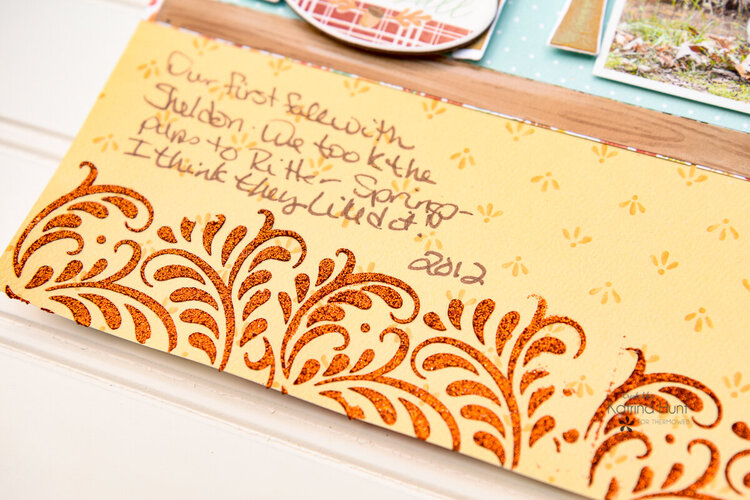 Our first fall with
Sheldon. We took the
pups to Ritter Springs -
I think they liked it!
2012
Katrina Hunt
FOR THERMOWEB